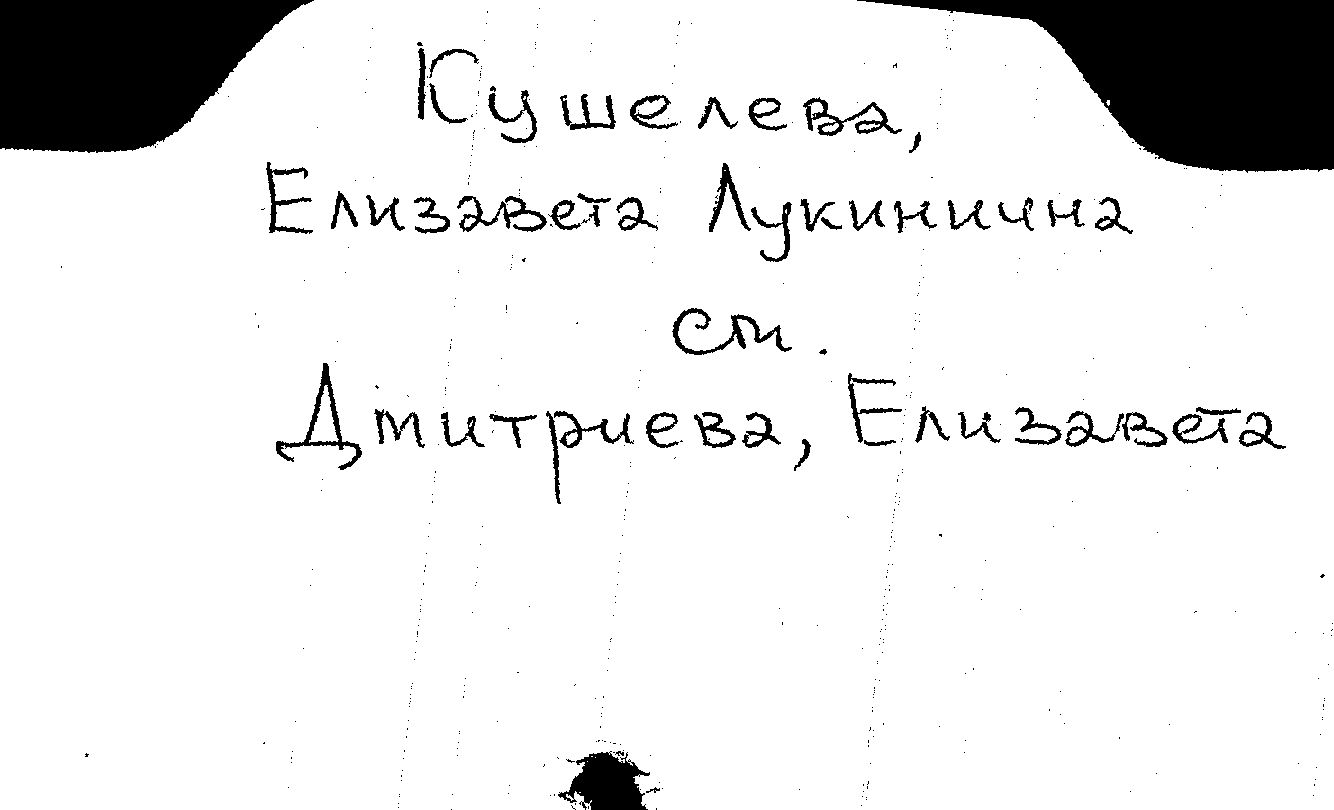 Кушелева,
Елизавета Лукинична
см.
Дмитриева, Елизавета